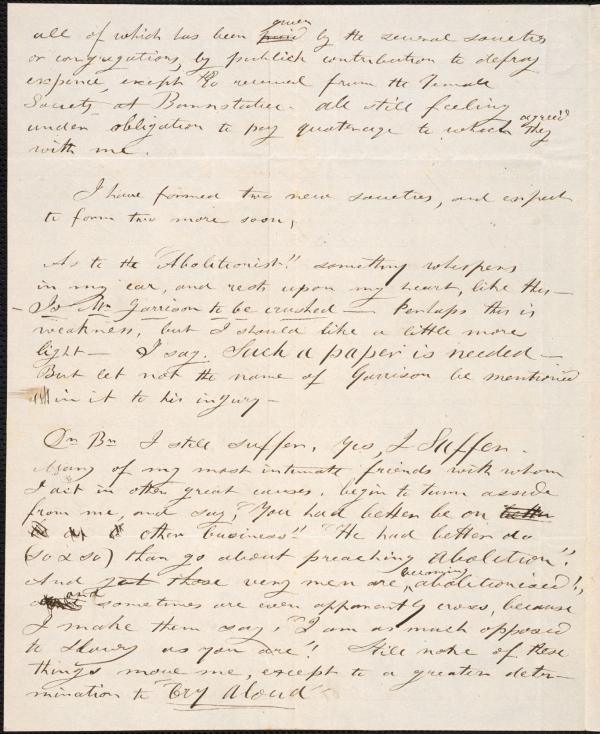 given
all of which has been paid by the several societies
or congregations, by publick contribution to defray
expence, except received from the Female
Society at Barnstable. all still feeling
agreed
under obligation to pay quoteage to which they
with me.
I have formed two new societies, and expect
to form two more soon,
As to the "Abolitionist"! something whispers
in my ear, and rests upon my heart, like this—
— Is Mr Garrison to be crushed — Perhaps this is
weakness, but I should like a little more
light — I say. Such a paper is needed —
But let not the name of Garrison be mentioned
in it to his injury —
Dr Br I still suffer. Yes, I Suffer.
Many of my most intimate friends with whom
I act in other great causes, begin to turn asside
from me, and say, "You had better be on better
other business"! "He had better do
(so & so) than go about preaching Abolition"!
becoming
And yet those very men are, abolitionised!,
and
sometimes are even apparently cross, because
I make them say, "I am as much opposed
to Slavery as you are"! Still none of these
things move me, except to a greater deter-
mination to "Cry Aloud"